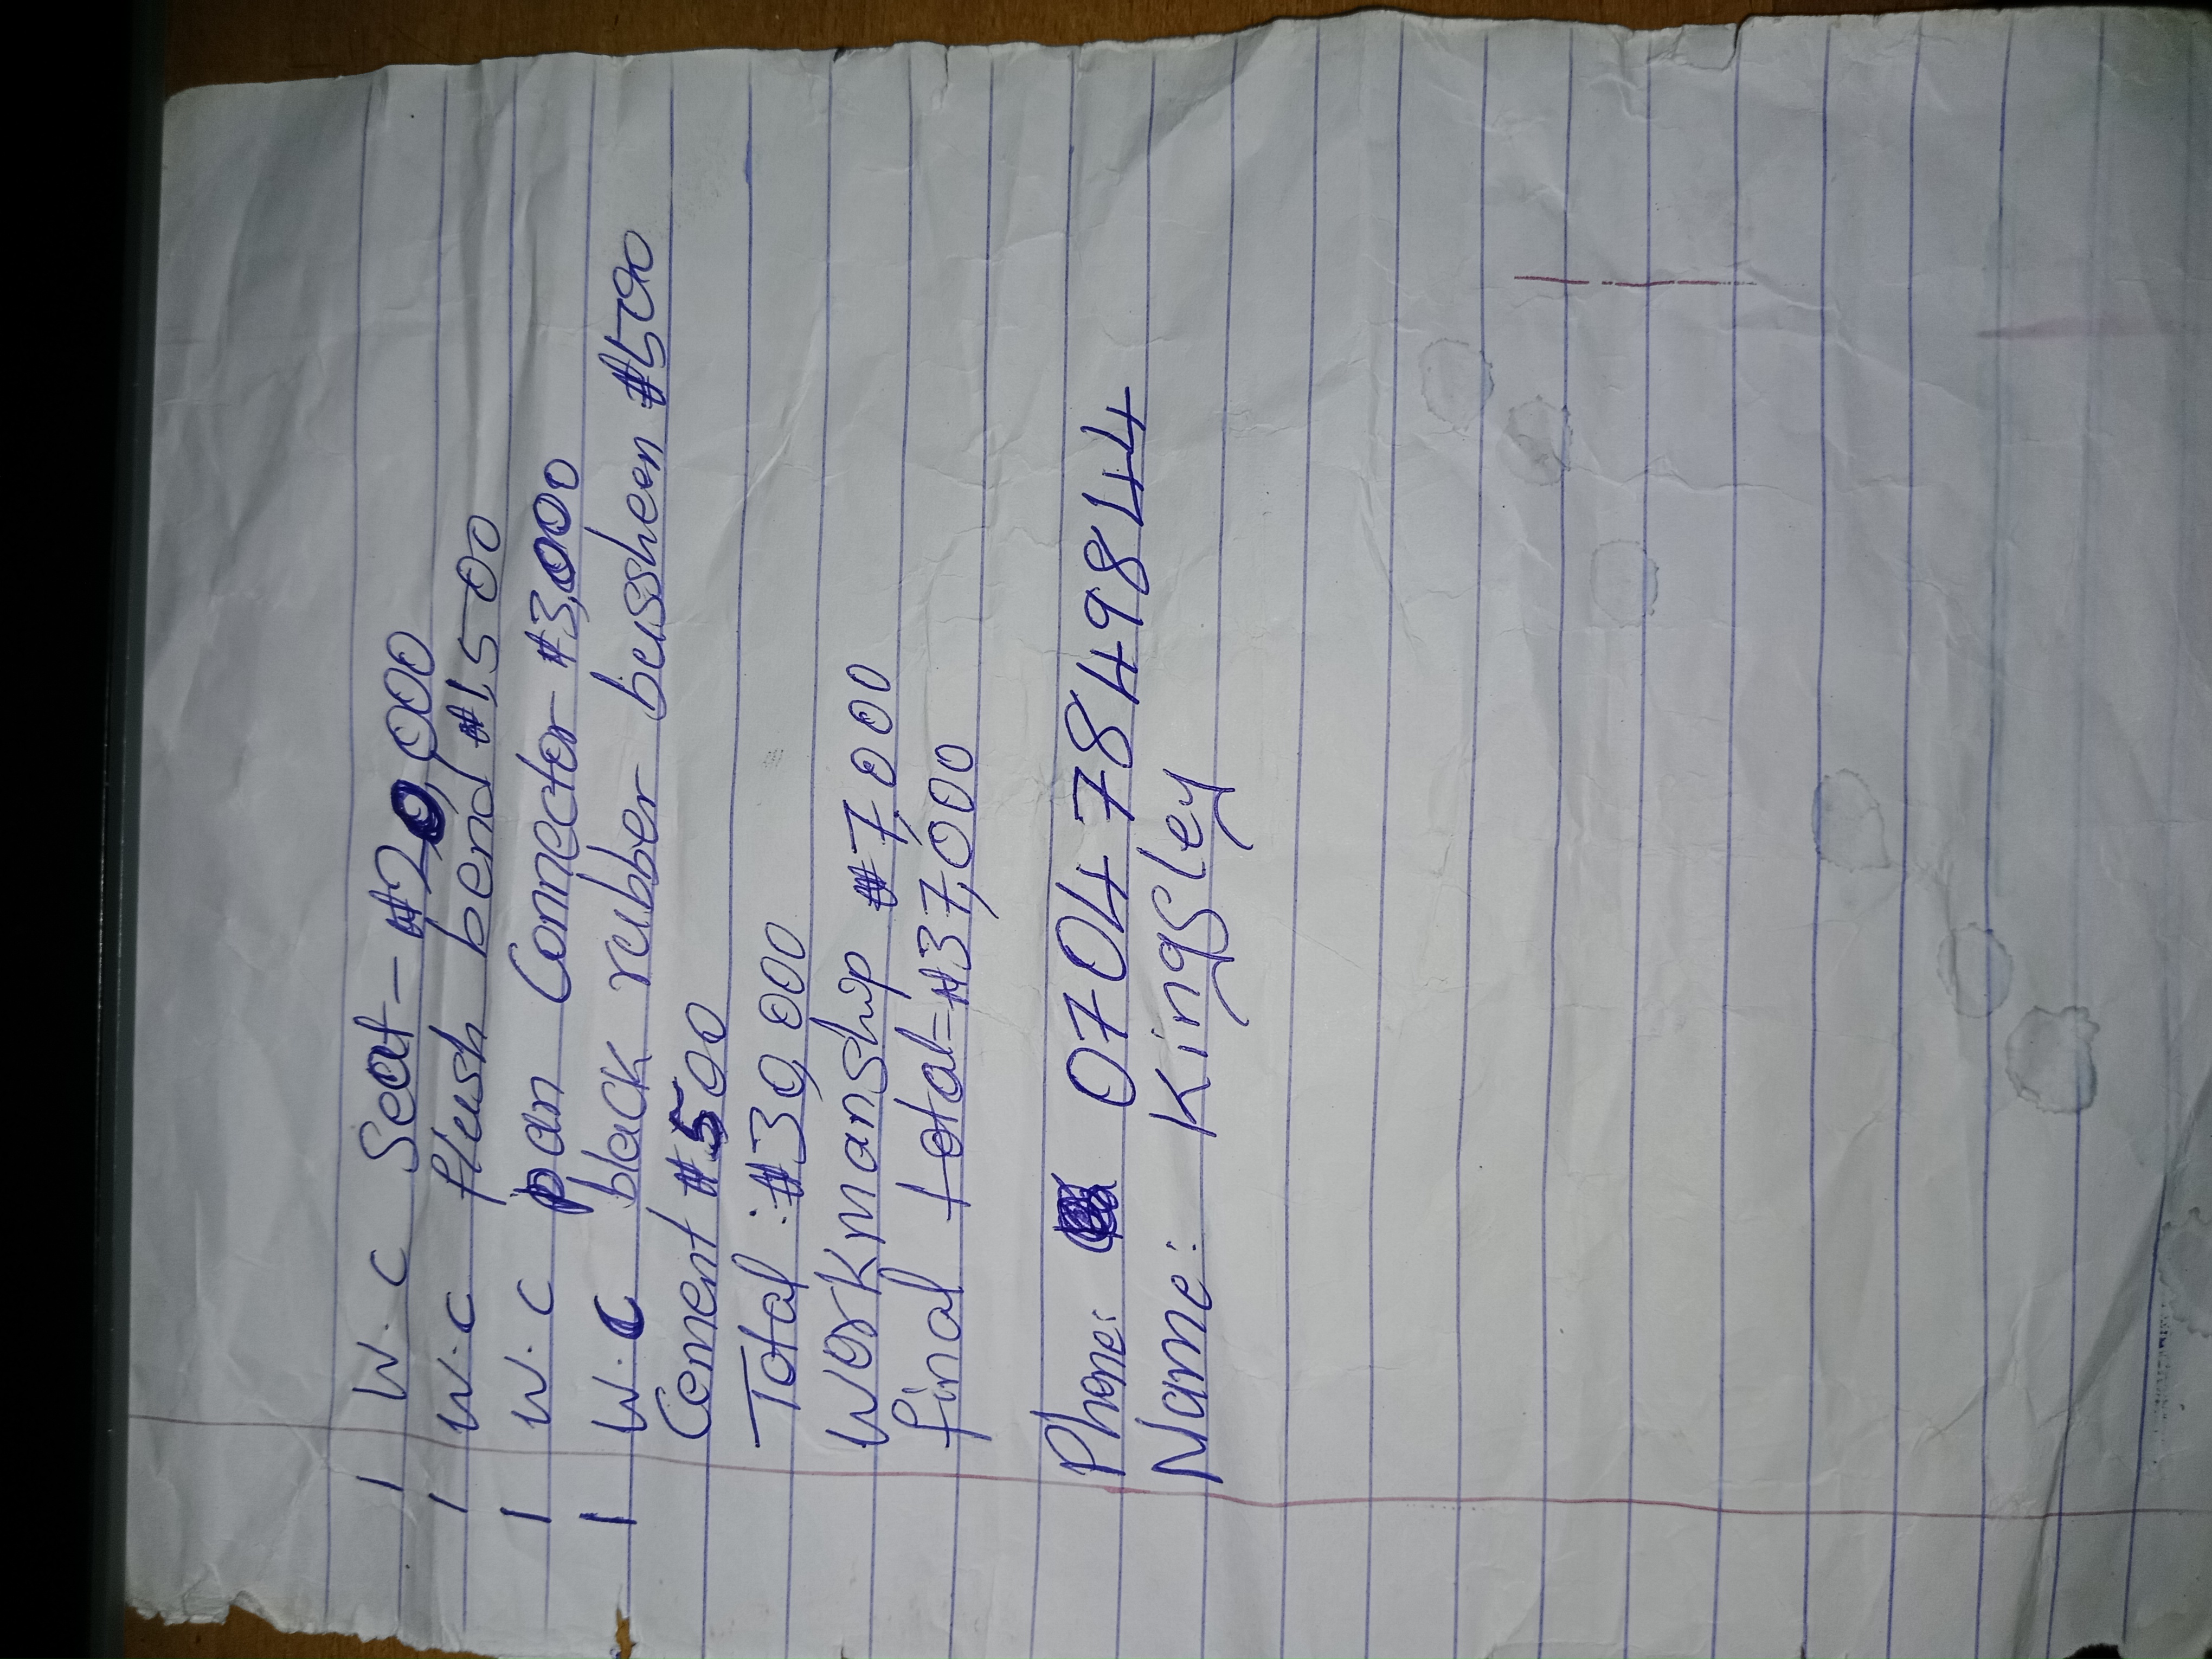 1 W.C Seat - #20,000
1 W.C flush bend #1,500
1 W.C pan Connector #3,000
1 W.C black rubber bussheen #500
Cement #500
Total : #30,000
Workmanship #7,000
final total = #37,000
Phone: 07047849844
Name: Kingsley